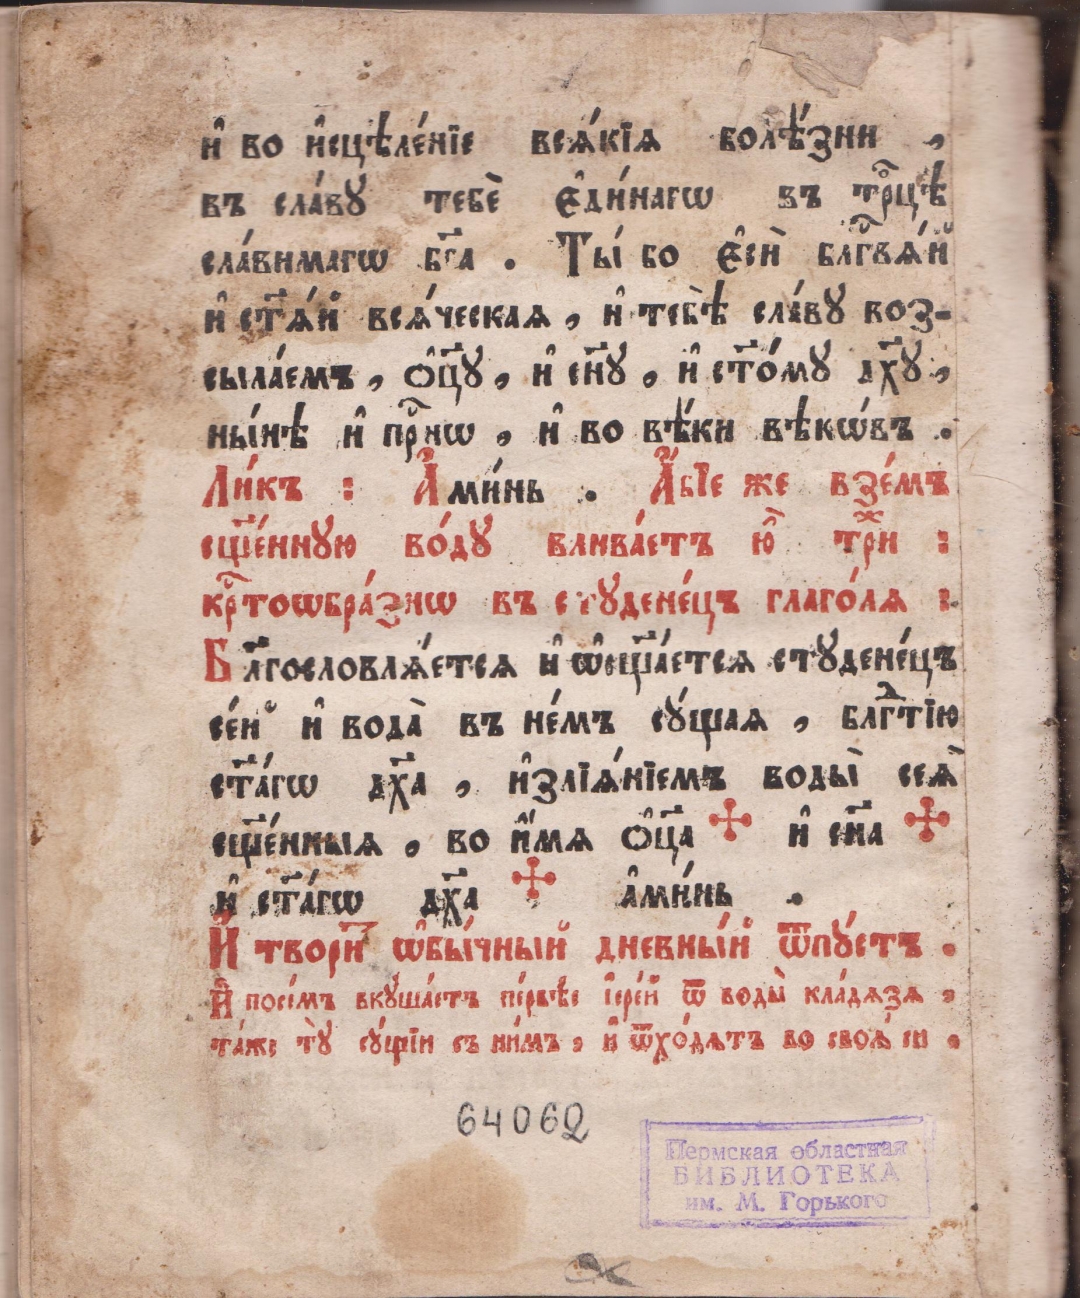 и҆ во и҆сцѣле́нїе всѧ́кїѧ болѣ́зни ,
въ сла́вꙋ тебѐ є҆ди́нагѡ въ трⷪ҇цѣ
сла́вимагѡ бг҃а . Ты́ бо є҆сѝ блгⷭ҇вѧ́й
и҆ ст҃ѧ́й всѧ́ческаѧ , и҆ тебѣ̀ сла́вꙋ воз-
сыла́емъ , ѻ҆ц҃ꙋ , и҆ сн҃ꙋ , и҆ ст҃о́мꙋ дх҃ꙋ ,
ны́нѣ и҆ прⷭ҇нѡ , и҆ во вѣ́ки вѣкѡ́въ .
Ли́къ : А҆ми́нь . А҆́бїе же взе́мъ
сщ҃е́ннꙋю во́дꙋ влива́етъ ю҆̀ три́жⷣ :
крⷭ҇тоѡбра́знѡ въ стꙋдене́цъ глаго́лѧ :
Бл҃гословлѧ́етсѧ и҆ ѡ҆сщ҃а́етсѧ стꙋдене́цъ
се́й и҆ вода̀ въ не́мъ сꙋ́щаѧ , блгⷣтїю
ст҃а́гѡ дх҃а , и҆злїѧ́нїемъ воды̀ сеѧ̀
сщ҃е́нныѧ , во и҆́мѧ ѻ҆ц҃а и҆ сн҃а
и҆ ст҃а́гѡ дх҃а а҆ми́нь .
И҆ твори́т ѡ҆бы́чный дневны́й ѿпꙋ́стъ .
И҆ посе́мъ вкꙋша́етъ пе́рвѣе і҆ере́й ѿ воды̀ кла́дѧзѧ ,
та́же тꙋ̀ сꙋ́щїи съ ни́мъ , и҆ ѿхо́дѧтъ во своѧ́ си .
64062
Пермская областная
БИБЛИОТЕКА
им. М. Горького